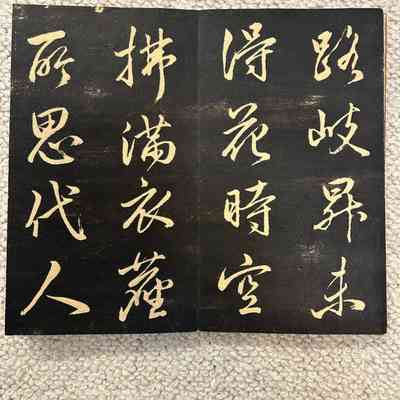 路岐昇未
得花時空
拂滿衣塵
所思代人